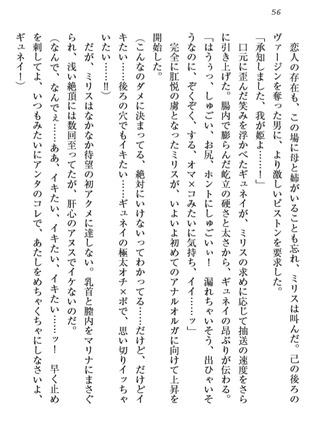 56
恋人の存在も、この場に母と姉がいることも忘れ、ミリスは叫んだ。己の後ろの
ヴァージンを奪った男に、より激しいピストンを要求した。
「承知しました、我が姫よ……！」
口元に歪んだ笑みを浮かべたギュネイが、ミリスの求めに応じて抽送の速度をさら
に引き上げた。腸内で膨らんだ屹立の硬さと太さから、ギュネイの昂ぶりが伝わる。
「はうぅっ、しゅごい、お尻、ホントにしゅごいぃ！ 漏れちゃいそう、出ひゃいそ
うなのに、ぞくぞく、する、オマ×コみたいに気持ち、イイ……ッ」
完全に肛悦の虜となったミリスが、いよいよ初めてのアナルオルガに向けて上昇を
開始した。
(こんなのダメに決まってる、絶対にいけないってわかってる……だけど、だけどイ
キたい……後ろの穴でもイキたい……ギュネイの極太オチ×ポで、思い切りイッちゃ
いたい……‼)
だが、ミリスはなかなか待望の初アクメに達しない。乳首と膣内をマリナにまさぐ
られ、浅い絶頂には数回至ってたが、肝心のアヌスでイケないのだ。
(なんで、なんでぇ……ああ、イキたい、イキたい、イキたい……ッ！ 早く止め
を刺してよ、いつもみたいにアンタのコレで、あたしをめちゃくちゃにしなさいよ、
ギュネイ！)